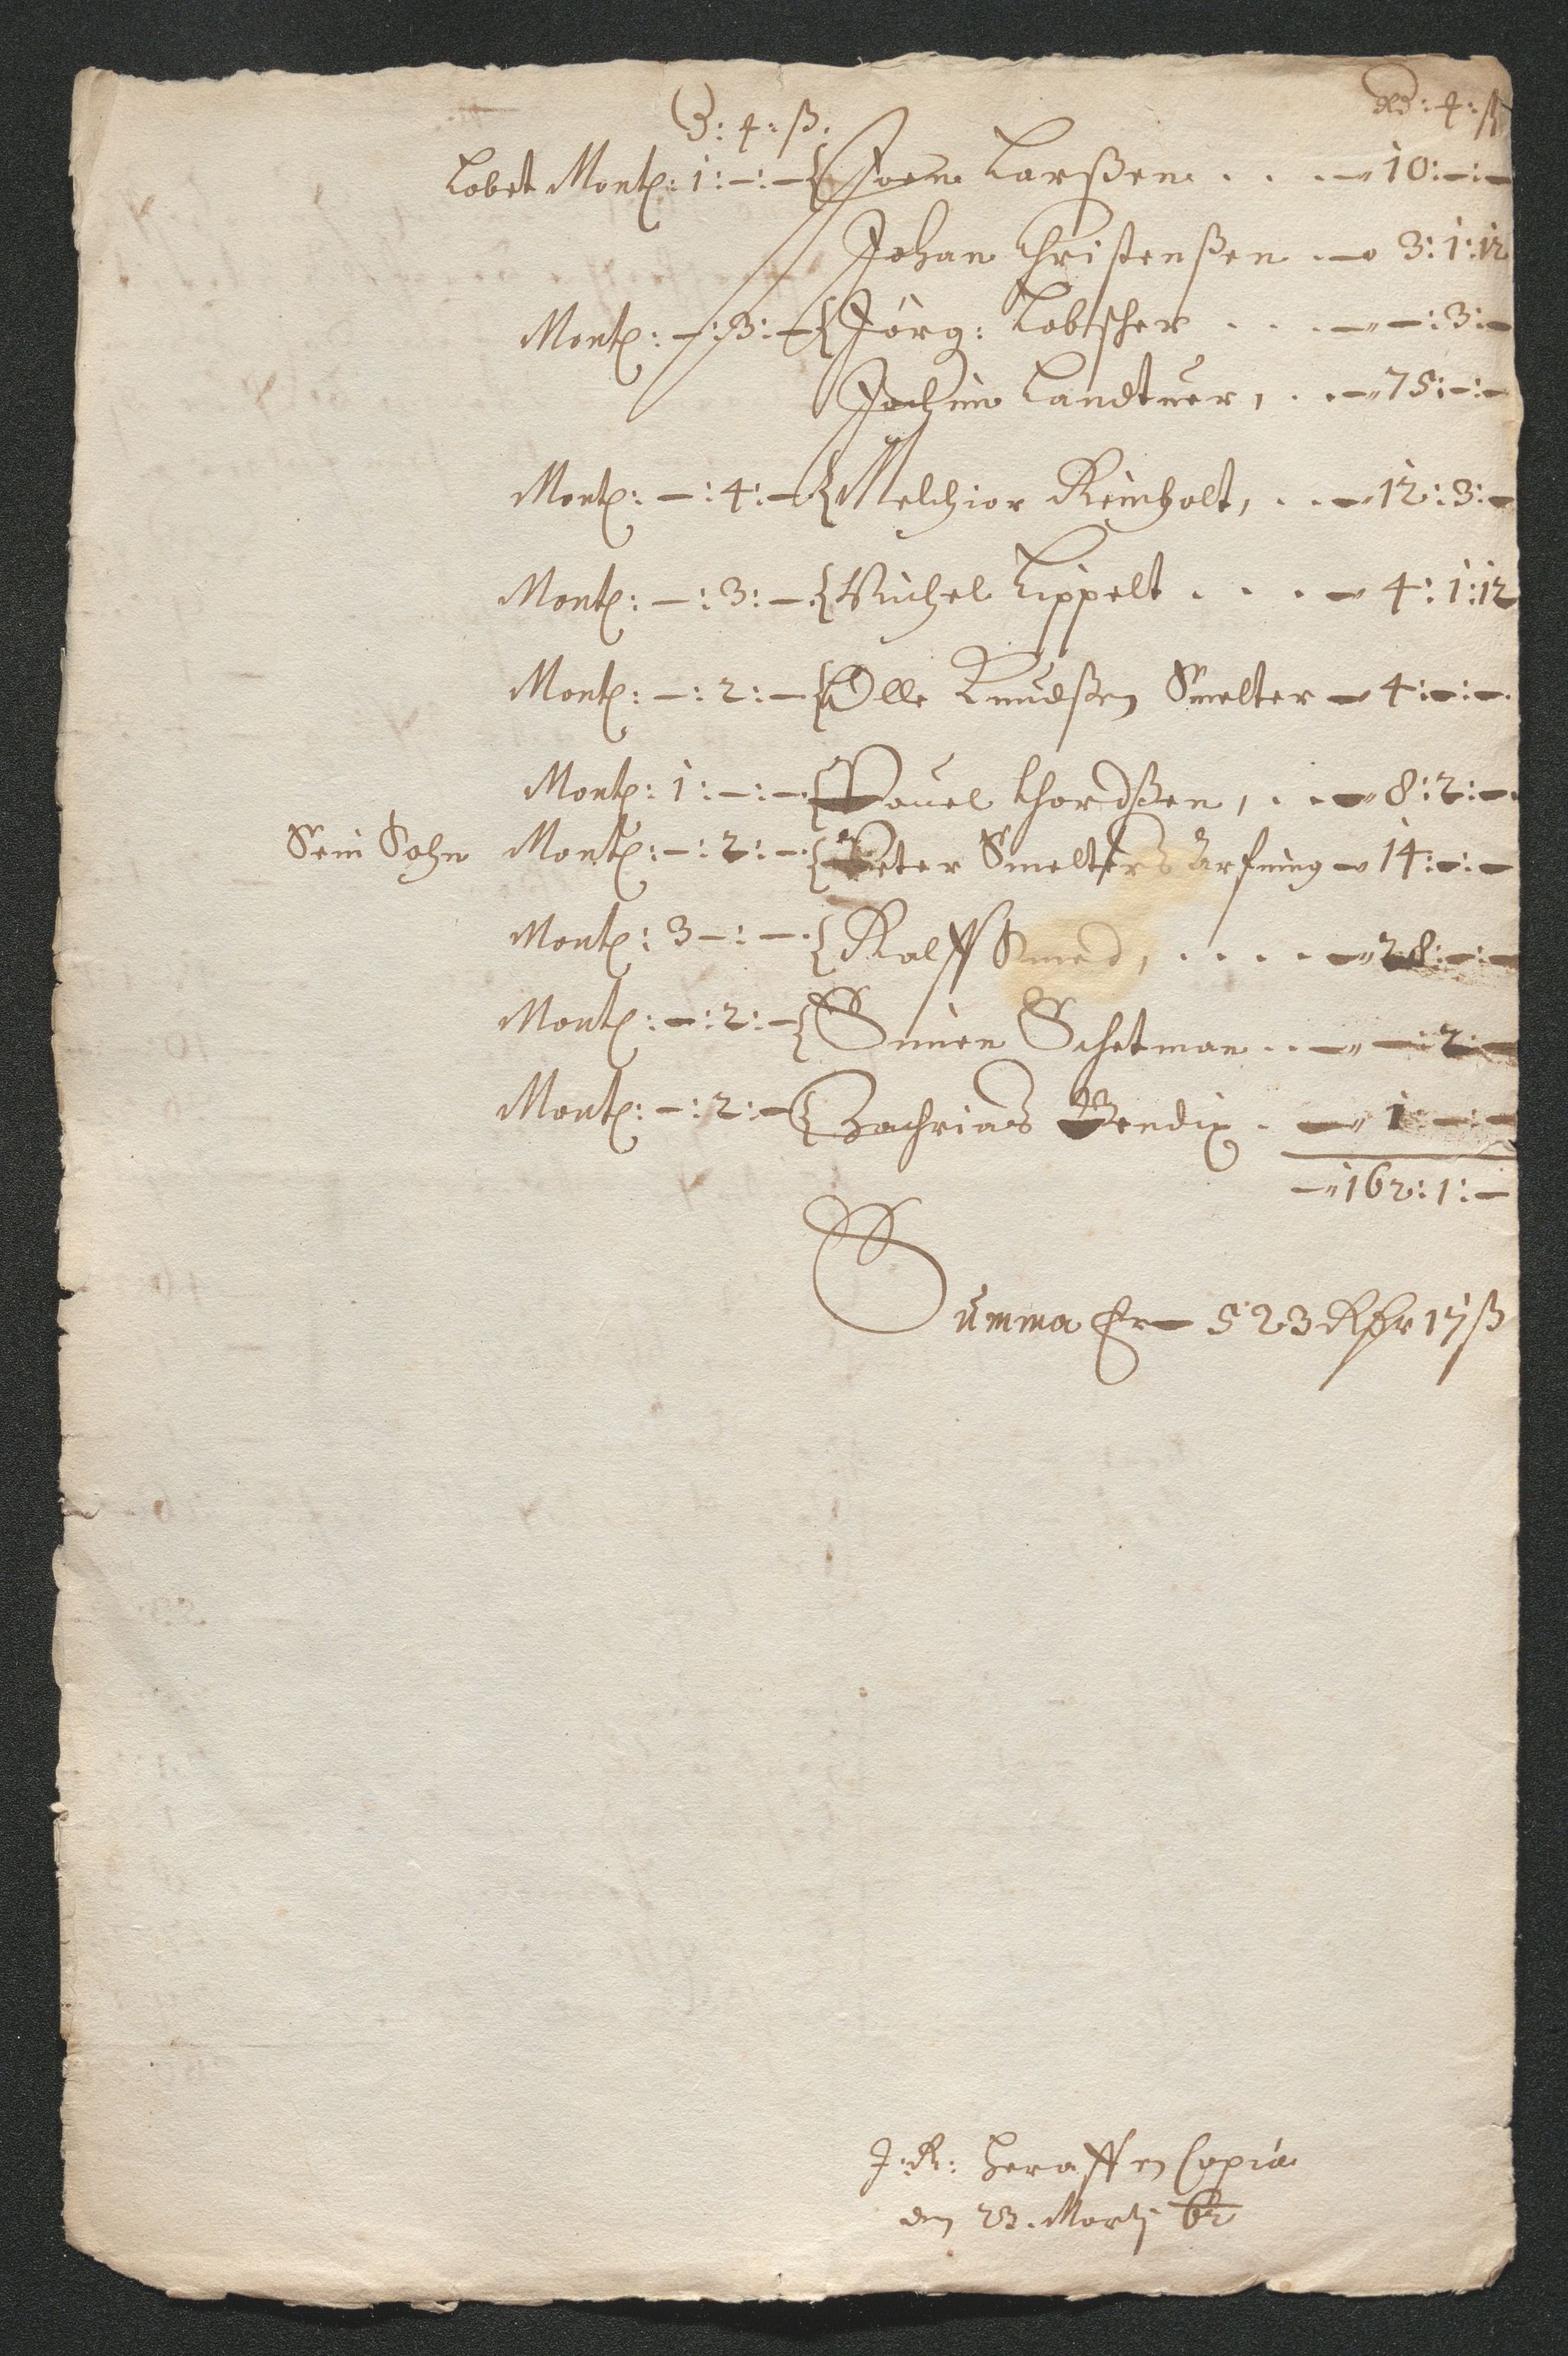 3: 4: ß. Rd: 4: ß
Lobet Montz: 1: –: – { Joen Larßen . . . – 10: –: –
Johan Christenßen . – 3: 1: 12
Montz: –: 3: – { Jörg: Lobscher . . . – –: 3: –
Jochim Landtuer, . . – 75: –: –
Montz: –: 4: – { Melchior Reinholt, . . – 12: 3: –
Montz: –: 3: – { Michel Lippelt . . . – 4: 1: 12
Montz: –: 2: – { Olle Knudßen Smelter – 4: –: –
Montz: 1: –: – { Pouel Thordßen, . . – 8: 2: –
Sein Sohn Montz: –: 2: – { Peter Smelters Arfning – 14: –: –
Montz: 3 –: – { Ralff Smed, . . . . – 28: –: –
Montz: –: 2: – { Simen Schetman . . – –: 2: –
Montz: –: 2: – { Zachrias Bendix . – 1: –: –
– 162: 1: –
Summa Er – 523 Rdr 17 ß
J: R: heraff en Copia
den 23. Martj 62